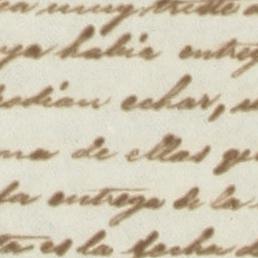 muy triste
ya habia entreg
podian echar, s
na de ellas ge
la entrega de la
ta es la fecha d